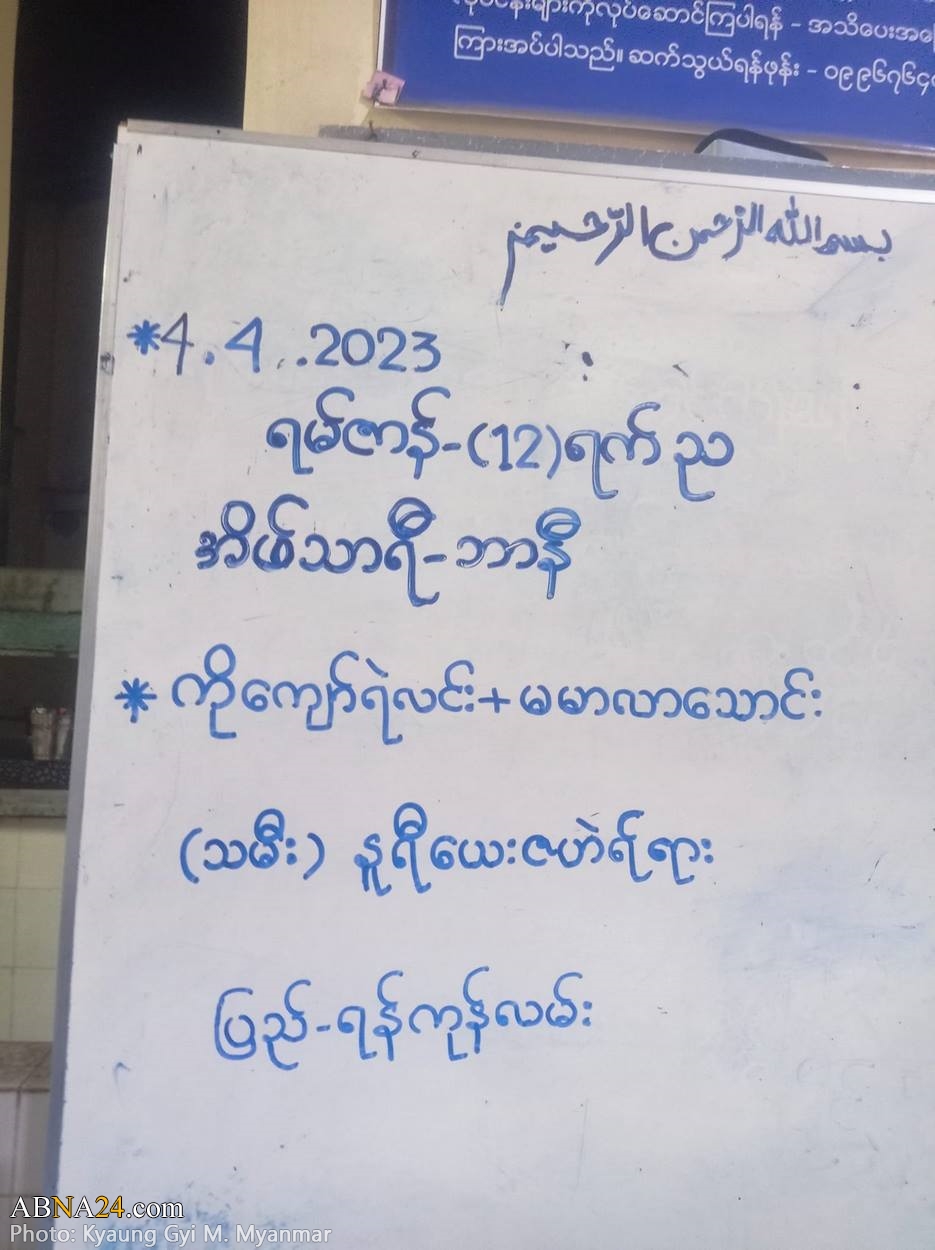 လုပ်ငန်းများကိုလုပ်ဆောင်ကြပါရန် - အသိပေးအ
ကြားအပ်ပါသည်။ ဆက်သွယ်ရန်ဖုန်း - ၀၉၉၆၇၆၄
بسم الله الرحمن الرحيم
*4.4..2023
ရမ်ဇာန်-(12)ရက်ည
အိဖ်သာရီ-ဘာနီ
* ကိုကျော်ရဲလင်း+မမာလာသောင်း
(သမီး) နူရီယေးဇဟဲရ်ရား
ပြည်-ရန်ကုန်လမ်း
ABNA24.com
Photo: Kyaung Gyi M. Myanmar